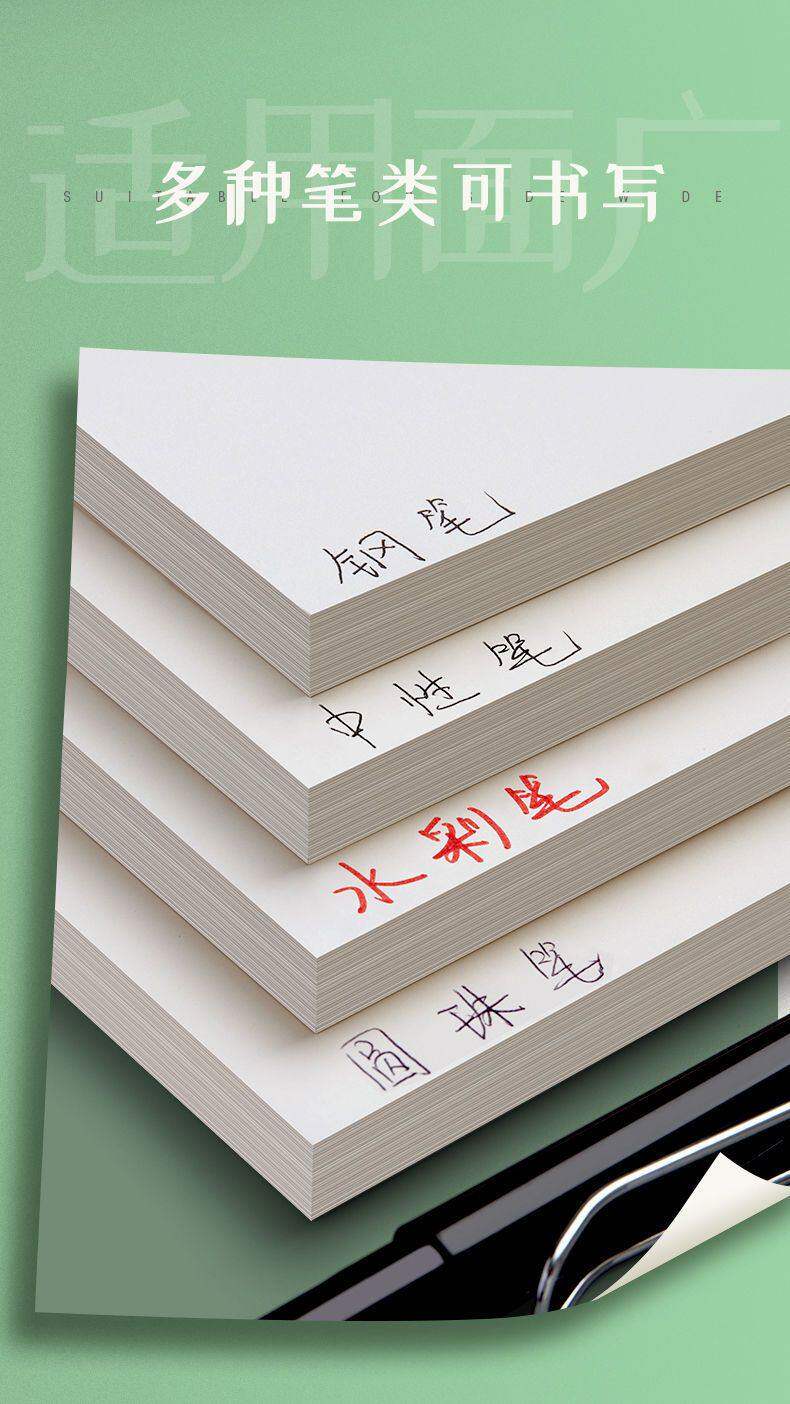 适用面广
多种笔类可书写
SUITABLE FOR SIDE WIDE
钢笔
中性笔
水彩笔
圆珠笔